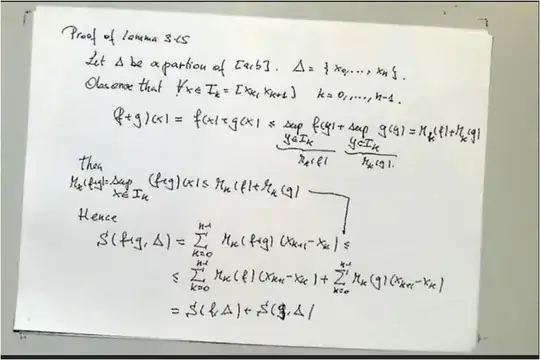 Proof of Lemma 3.15
Let Δ be a partion of [a,b]. Δ = { x₀, ..., xₙ }.
Observe that ∀x ∈ Iₖ = [xₖ, xₖ₊₁] k = 0, ..., n-1.
(f+g)(x) = f(x)+g(x) ≤ sup_{y∈Iₖ} f(y) + sup_{y∈Iₖ} g(y) = Mₖ(f)+Mₖ(g)
Mₖ(f) Mₖ(g).
then
Mₖ(f+g) = sup_{x∈Iₖ} (f+g)(x) ≤ Mₖ(f)+Mₖ(g)
Hence
S(f+g, Δ) = ∑_{k=0}^{n-1} Mₖ(f+g) (xₖ₊₁-xₖ) ≤
≤ ∑_{k=0}^{n-1} Mₖ(f)(xₖ₊₁-xₖ) + ∑_{k=0}^{n-1} Mₖ(g)(xₖ₊₁-xₖ)
= S(f,Δ) + S(g,Δ)